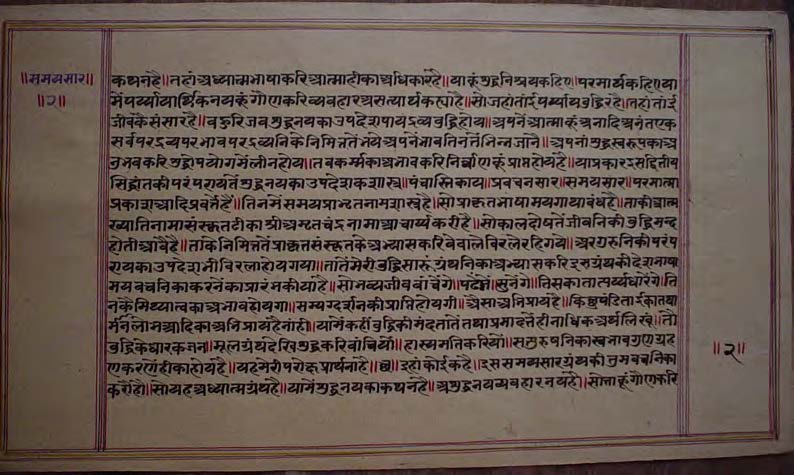 ॥समयसार॥
॥२॥
कथनहै॥तहांअध्यात्मभाषाकरिआत्माहीकाअधिकारहै॥याकूंशुद्धनिश्चयकहिए॥परमार्थकहिएया
मेंपर्यायार्थिकनयकूंगौणकरिव्यवहारअसत्यार्थकह्याहै॥सोजहांतांईपर्यायबुद्धिरहै॥तहांतांई
जीवकैसंसारहै॥बहुरिजबशुद्धनयकाउपदेशपायद्रव्यबुद्धिहोय॥अपनेंआत्माकूंअनादिअनंतएक
सर्वपरद्रव्यपरभावपरद्रव्यनिकेनिमित्ततेंभयेअपनेंभावतिनतेंभिन्नजांनै॥अपनांशुद्धस्वरूपकाअ
नुभवकरिशुद्धोपयोगमेंलीनहोय॥तबकर्म्मकाअभावकरिनिर्वाणकूंप्राप्तहोयहै॥याप्रकारइसद्वितीय
सिद्धांतकीपरंपरायतेंशुद्धनयकाउपदेशकशास्त्र॥पंचास्तिकाय॥प्रवचनसार॥समयसार॥परमात्मा
प्रकाशआदिप्रवर्तैहैं॥तिनमेंसमयप्राभृतनामशास्त्रहै॥सोप्राकृतभाषामयगाथाबंधहै॥ताकीआत्म
ख्यातिनामासंस्कृतटीकाश्रीअमृतचंद्रनामाआचार्य्यकरीहै॥सोकालदोषतेंजीवनिकीबुद्धिमन्द
होतीआवैहै॥ताकेनिमित्ततेंप्राकृतसंस्कृतकेअभ्यासकरिवेवालेविरलेरहिगये॥अरगुरुनिकीपरंप
रायकाउपदेशभीविरलाहोयगया॥तातेंमेरीबुद्धिसारूंग्रंथनिकाअभ्यासकरिइसग्रंथकीदेशभाषा
मयवचनिकाकरनेंकाप्रारंभकीयाहै॥सोभव्यजीववांचेगे॥पढेंगे॥सुनेंगे॥तिसकातात्पर्य्यधारेंगे॥ति
नकैमिथ्यात्वकाअभावहोयगा॥सम्यग्दर्शनकीप्राप्तिहोयगी॥ऐसाअभिप्रायहै॥किछुपंडिताईकातथा
मांनलोभआदिकाअभिप्रायहैनांही॥यामेंकहींबुद्धिकीमंदतातेंतथाप्रमादतेंहीनाधिकअर्थलिखूं॥तौ
बुद्धिकेधारकजन॥मूलग्रंथदेखिशुद्धकरिवांचियो॥हास्यमतिकरियो॥सत्पुरुषनिकास्वभावगुणग्रह
णकरणेंहीकाहोयहै॥यहमेरीपरोक्षप्रार्थनाहै॥इहांकोईकहै॥इससमयसारग्रंथकीतुमवचनिका
करौहौ॥सोयहअध्यात्मग्रंथहै॥यामेंशुद्धनयकाकथनहै॥अशुद्धनयव्यवहारनयहै॥सोताकूंगौणकरि
॥२॥